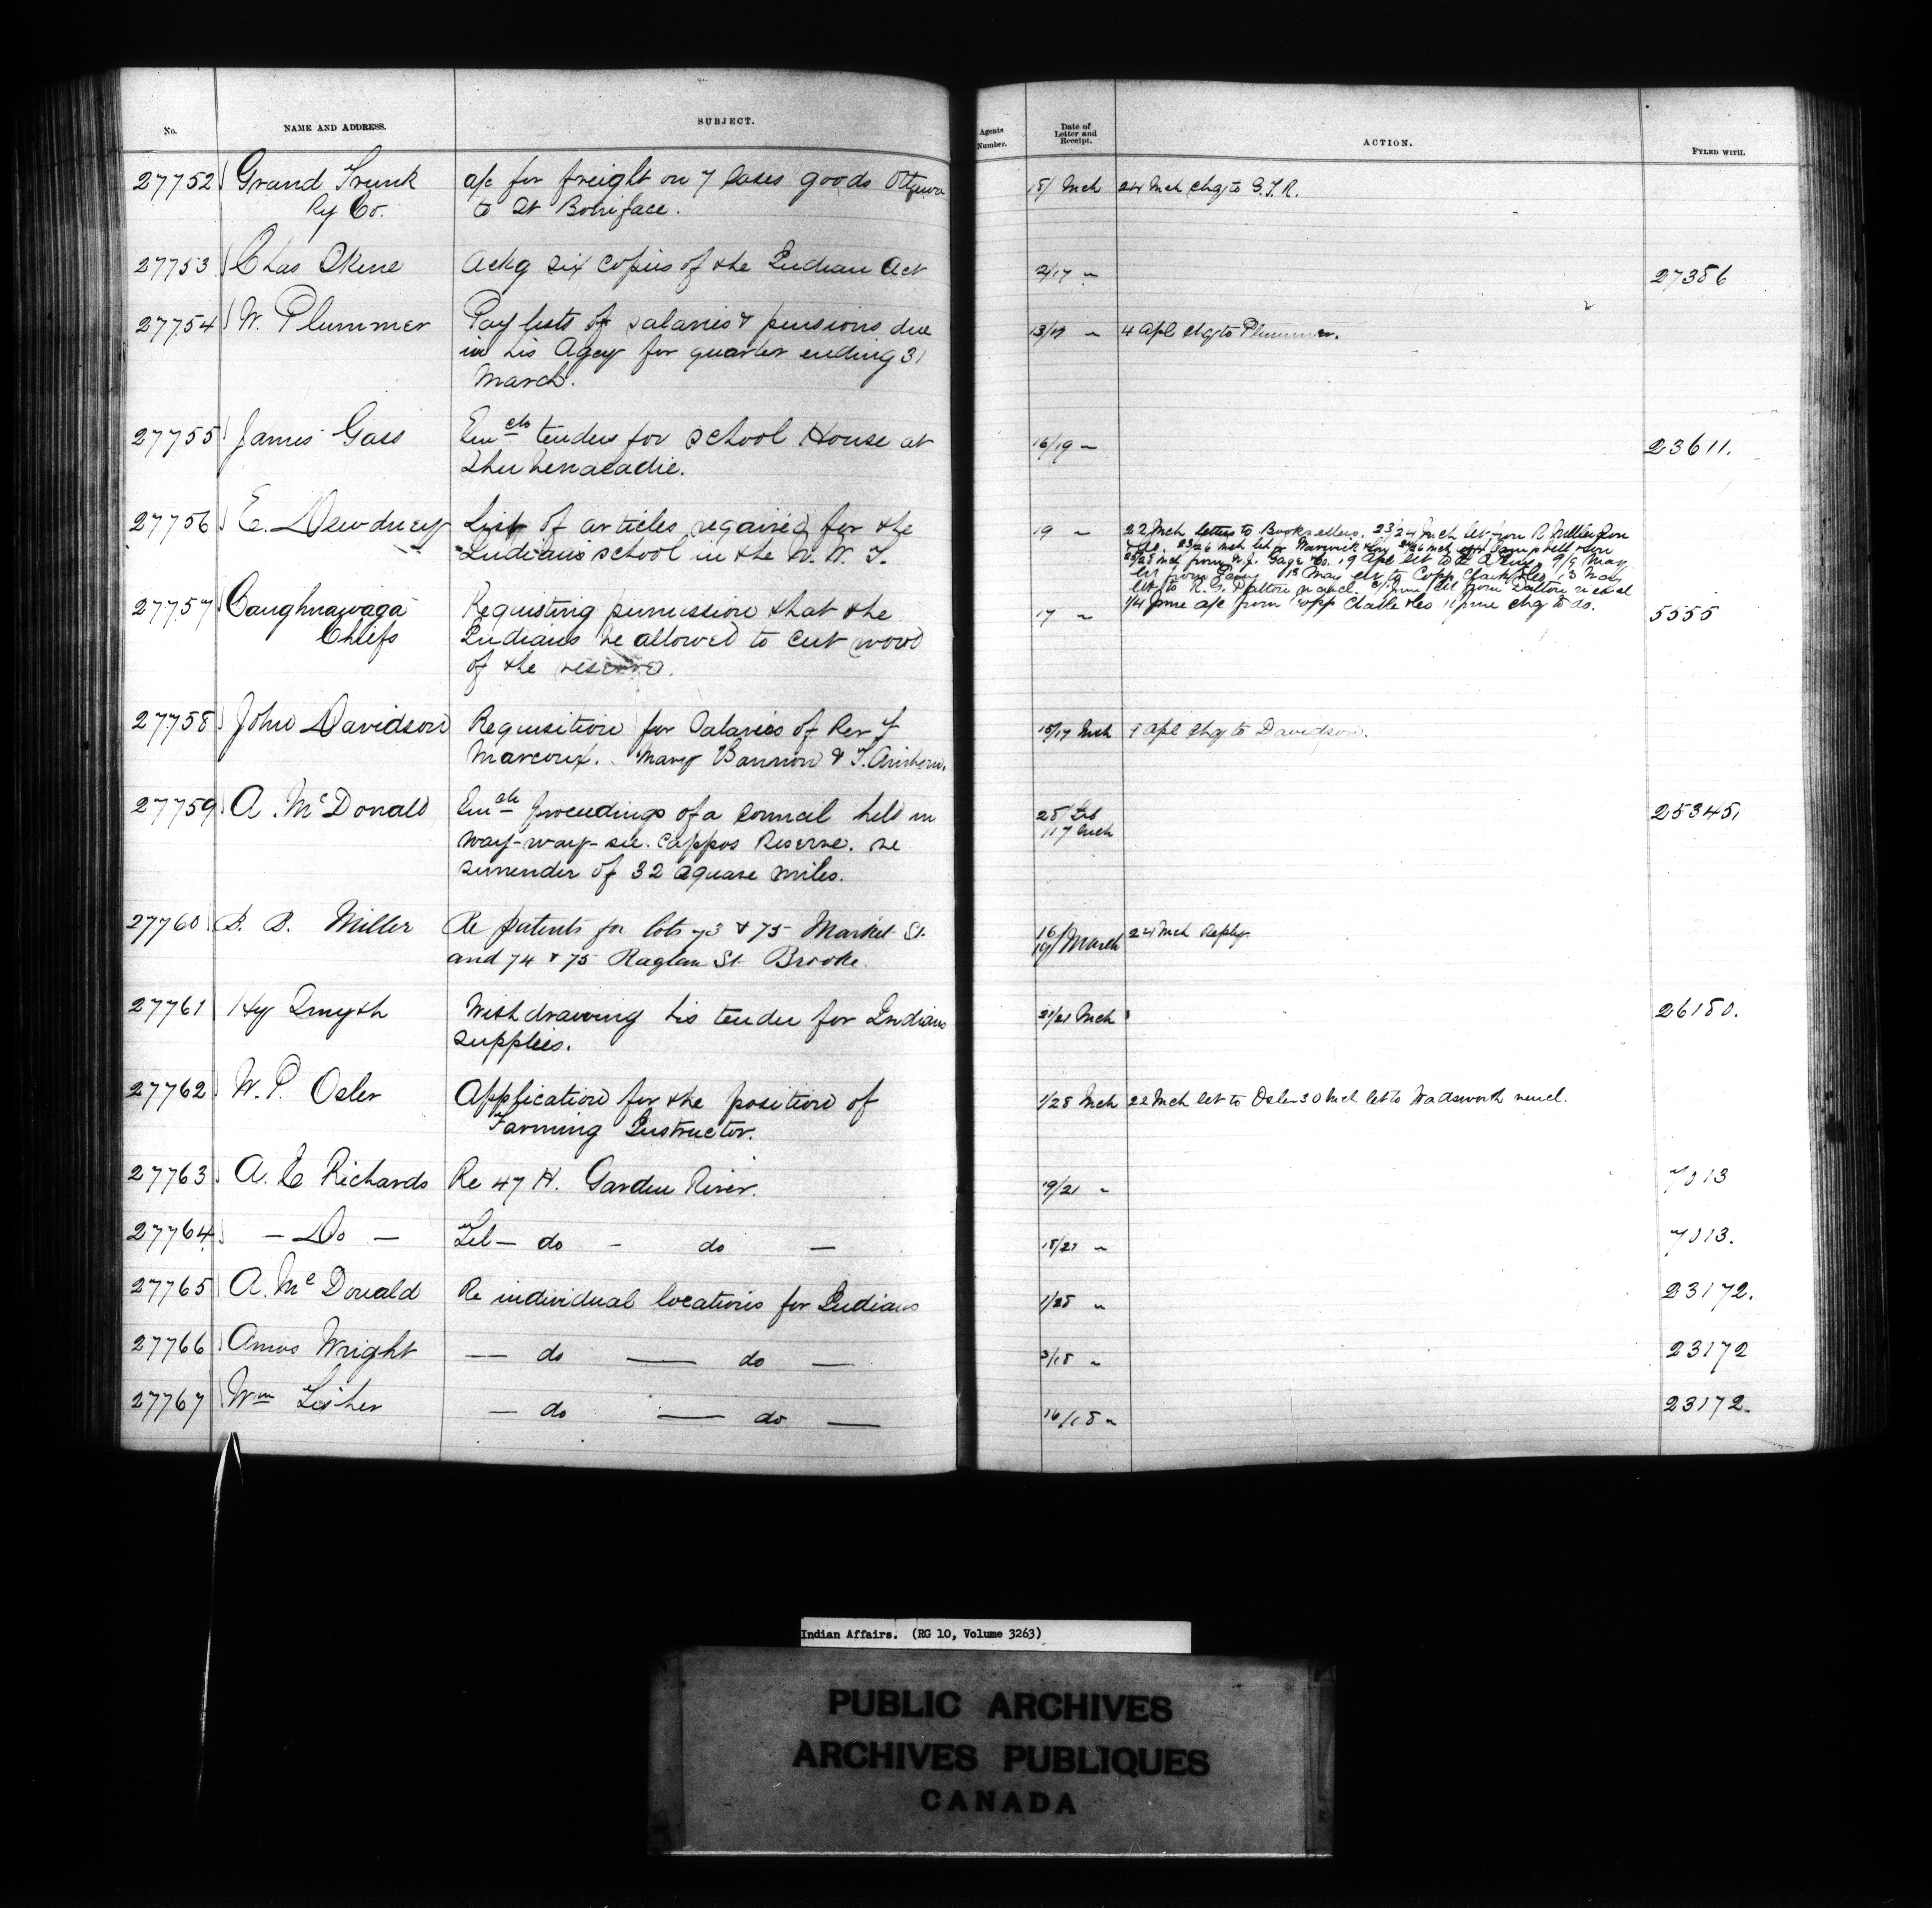 No.
NAME AND ADDRESS.
SUBJECT.
Agents Number.
Date of Letter and Receipt.
ACTION.
FYLED WITH.
27752 Grand Trunk a/c for freight on 7 Cases goods Ottawa 18/ Mch 24 Mch chq to G.T.R.
Ry Co. to St Boniface.
27753 Chas Skene Ackg six copies of the Indian Act 2/17 " 27356
27754 W. Plummer Pay lists of salaries & pensions due 13/17 " 4 Apl chq to Plummer.
in his Agcy for quarter ending 31
March.
27755 James Gass Encls tenders for School House at 16/19 " 23611.
Shubenacadie.
27756 E. Dewdney List of articles required for the 19 " 22 Mch letters to Booksellers. 23/24 Mch let from R
Indians school in the N. W. T.
from W.J. Gage & Co. 19 Apl let to
13 May let to Copp Clark & Co, 13 May
1/4 June a/c from Copp Clarke & Co 11 June chq to do.
27757 Caughnawaga Requisting permission that the 17 " 5555
Chiefs Indians be allowed to cut wood
of the reserve.
27758 John Davidson Requisition for Salaries of Rev F 15/17 Mch 1 Apl chq to Davidson.
Marcoux. Mary Bannon &
27759 A. McDonald Encls proceedings of a Council held in 25/ Feb 25345,
/17 Mch
Way-way-see. Cappos Reserve. re
surrender of 32 square miles.
27760 B. B. Miller Re patents for lots 73 & 75 Market St. 16/ 24 Mch Reply
and 74 & 75 Raglan St Brooke. 19/ March
27761 Hy Smyth Withdrawing his tender for Indian 21/21 Mch 26180.
supplies.
27762 W. P. Osler Application for the position of 1/28 Mch 22 Mch let to Osler 30 Mch let to Wadsworth
Farming Instructor.
27763 A. E Richards Re 47 H. Garden River. 19/21 " 7013
27764 — Do — Tel — do — do — 18/21 " 7013.
27765 A. McDonald Re individual locations for Indians 1/28 " 23172.
27766 Amos Wright — do — do — 3/18 " 23172
27767 Wm — do — do — 16/18 " 23172.
Indian Affairs. (RG 10, Volume 3263)
PUBLIC ARCHIVES
ARCHIVES PUBLIQUES
CANADA